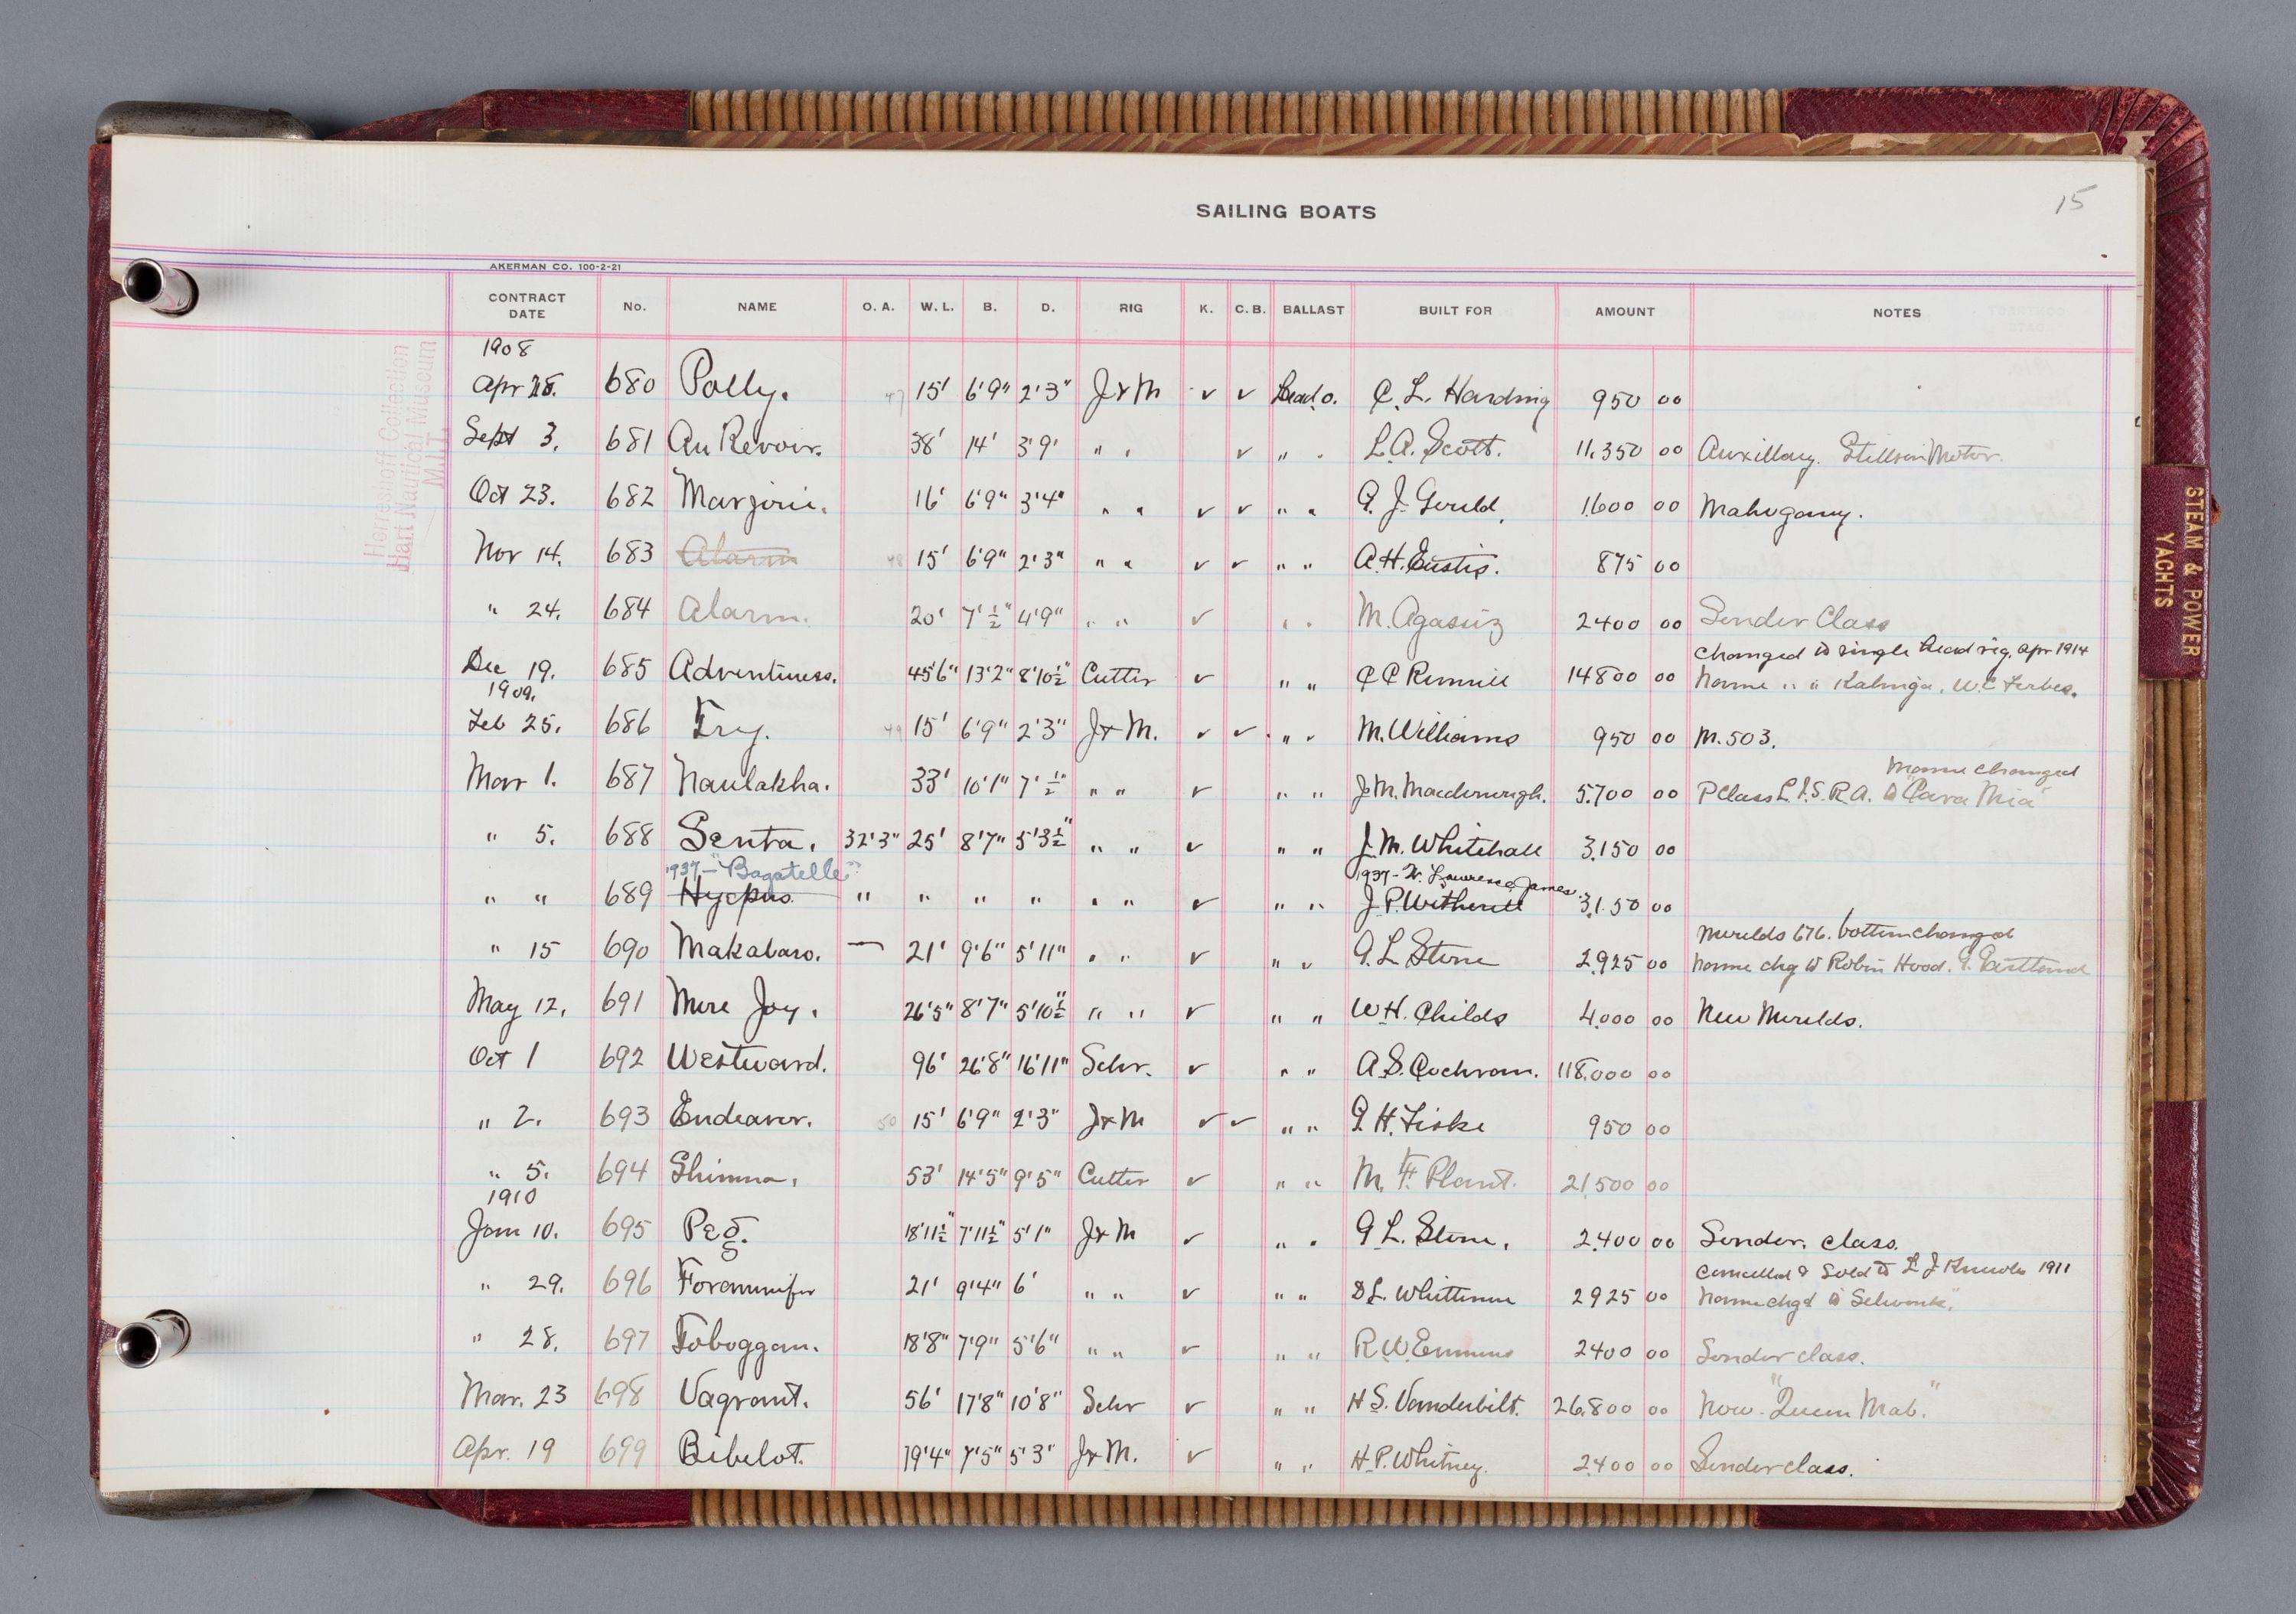 SAILING BOATS
15
AKERMAN CO. 100-2-21
CONTRACT DATE No. NAME O. A. W. L. B. D. RIG K. C. B. BALLAST BUILT FOR AMOUNT NOTES
1908
Apr 28. 680 Polly. 47 15' 6'9" 2'3" J & M ✓ ✓ Lead o. C. L. Harding 950 00
Sept 3. 681 Au Revoir. 38' 14' 3'9' " " ✓ " " L. A. Scott. 11,350 00 Auxillary. Stillson Motor.
Oct 23. 682 Marjorie. 16' 6'9" 3'4" " " ✓ ✓ " " G. J. Gould. 1600 00 Mahogany.
Nov 14. 683 Alarm 48 15' 6'9" 2'3" " " ✓ ✓ " " A. H. Eustis. 875 00
" 24. 684 Alarm. 20' 7' ½" 4'9" " " ✓ " " M. Agassiz 2400 00 Sonder Class
changed to single head rig, Apr 1914
Dec 19. 685 Adventuress. 45'6" 13'2" 8'10½" Cutter ✓ " " C C Rumrill 14800 00 Name " " Kalinga. W. C. Forbes.
1909.
Feb 25. 686 49 15' 6'9" 2'3" J & M. ✓ ✓ " " M. Williams 950 00 M. 503.
Name changed
Mar 1. 687 Naulakha. 33' 10'1" 7' ½" " " ✓ " " J. M. Macdonough. 5,700 00 P Class L. I. S. R. A. to "Cara Mia"
" 5. 688 Senta. 32'3" 25' 8'7" 5'3½" " " ✓ " " J. M. Whitehall 3,150 00
1937 – "Bagatelle" 1937 - W. Lawrence James.
" " 689 " " " " " " ✓ " " J. P. Witherill 3,150 00
Merelda 676. bottom changed
" 15 690 Makabaro. — 21' 9'6" 5'11" " " ✓ " " G. L. Stone 2,925 00 Name chg to Robin Hood.
May 12. 691 Mere Joy. 26'5" 8'7" 5'10½" " " ✓ " " W. H. Childs 4,000 00 New Merelda.
Oct 1 692 Westward. 96' 26'8" 16'11" Schr. ✓ " " A. S. Cochran. 118,000 00
" 2. 693 Endeavor. 50 15' 6'9" 2'3" J & M ✓ ✓ " " G. H. Fiske 950 00
" 5. 694 Shimna. 53' 14'5" 9'5" Cutter ✓ " " M. F. Plant. 21,500 00
1910
Jan 10. 695 Peg. 18'11½" 7'11½" 5'1" J & M ✓ " " G. L. Stone. 2,400 00 Sonder. class.
Cancelled & Sold to 1911
" 29. 696 21' 9'4" 6' " " ✓ " " D. L. Whittemore 2925 00 Name chgd to
" 28. 697 Toboggan. 18'8" 7'9" 5'6" " " ✓ " " R W Emmons 2400 00 Sonder class.
Mar. 23 698 Vagrant. 56' 17'8" 10'8" Schr ✓ " " H. S. Vanderbilt. 26,800 00 Now "Queen Mab."
Apr. 19 699 Bibelot. 19'4" 7'5" 5'3" J & M. ✓ " " H. P. Whitney. 2,400 00 Sonder class.
Herreshoff Collection
Hart Nautical Museum
M.I.T.
STEAM & POWER
YACHTS